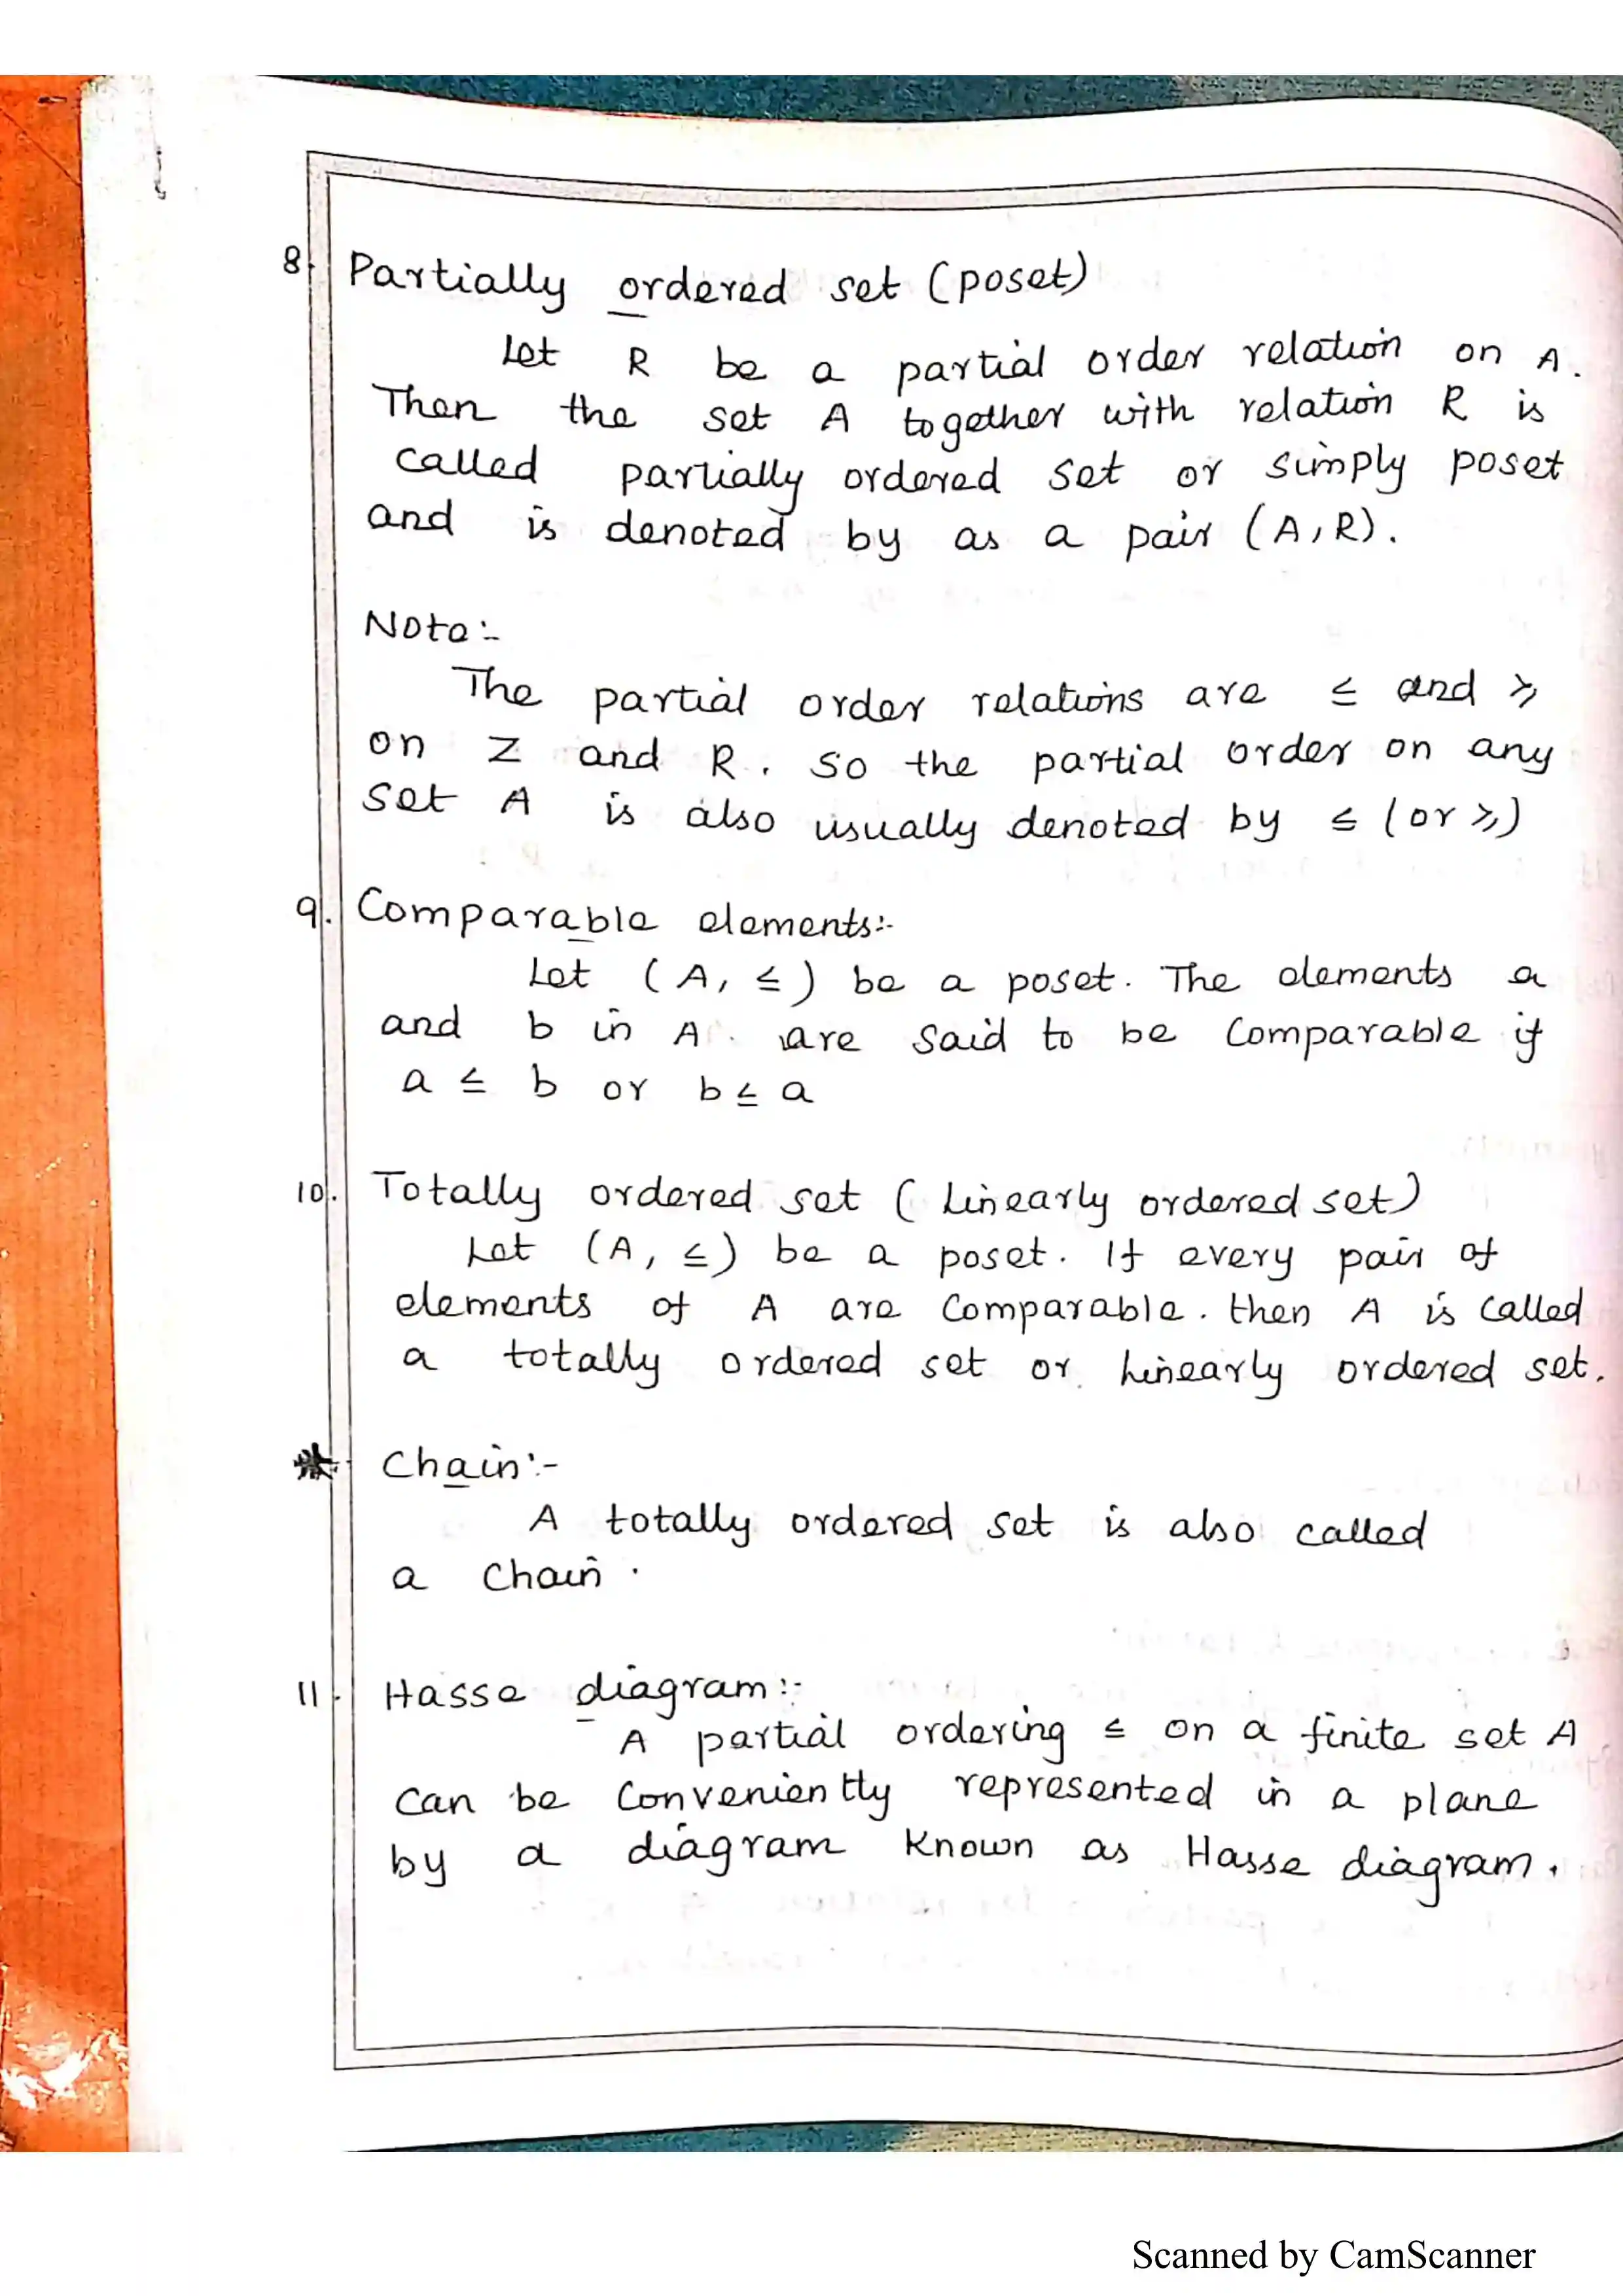 8. Partially ordered set (poset)
Let R be a partial order relation on A.
Then the set A together with relation R is
called partially ordered set or simply poset
and is denoted by as a pair (A, R).
Note:-
The partial order relations are ≤ and ≥
on Z and R. So the partial order on any
set A is also usually denoted by ≤ (or ≥)
9. Comparable elements:-
Let (A, ≤) be a poset. The elements a
and b in A are said to be Comparable if
a ≤ b or b ≤ a
10. Totally ordered set (Linearly ordered set)
Let (A, ≤) be a poset. If every pair of
elements of A are Comparable. then A is called
a totally ordered set or Linearly ordered set.
* Chain:-
A totally ordered set is also called
a Chain.
11. Hasse diagram:-
A partial ordering ≤ on a finite set A
Can be Conveniently represented in a plane
by a diagram known as Hasse diagram.
Scanned by CamScanner